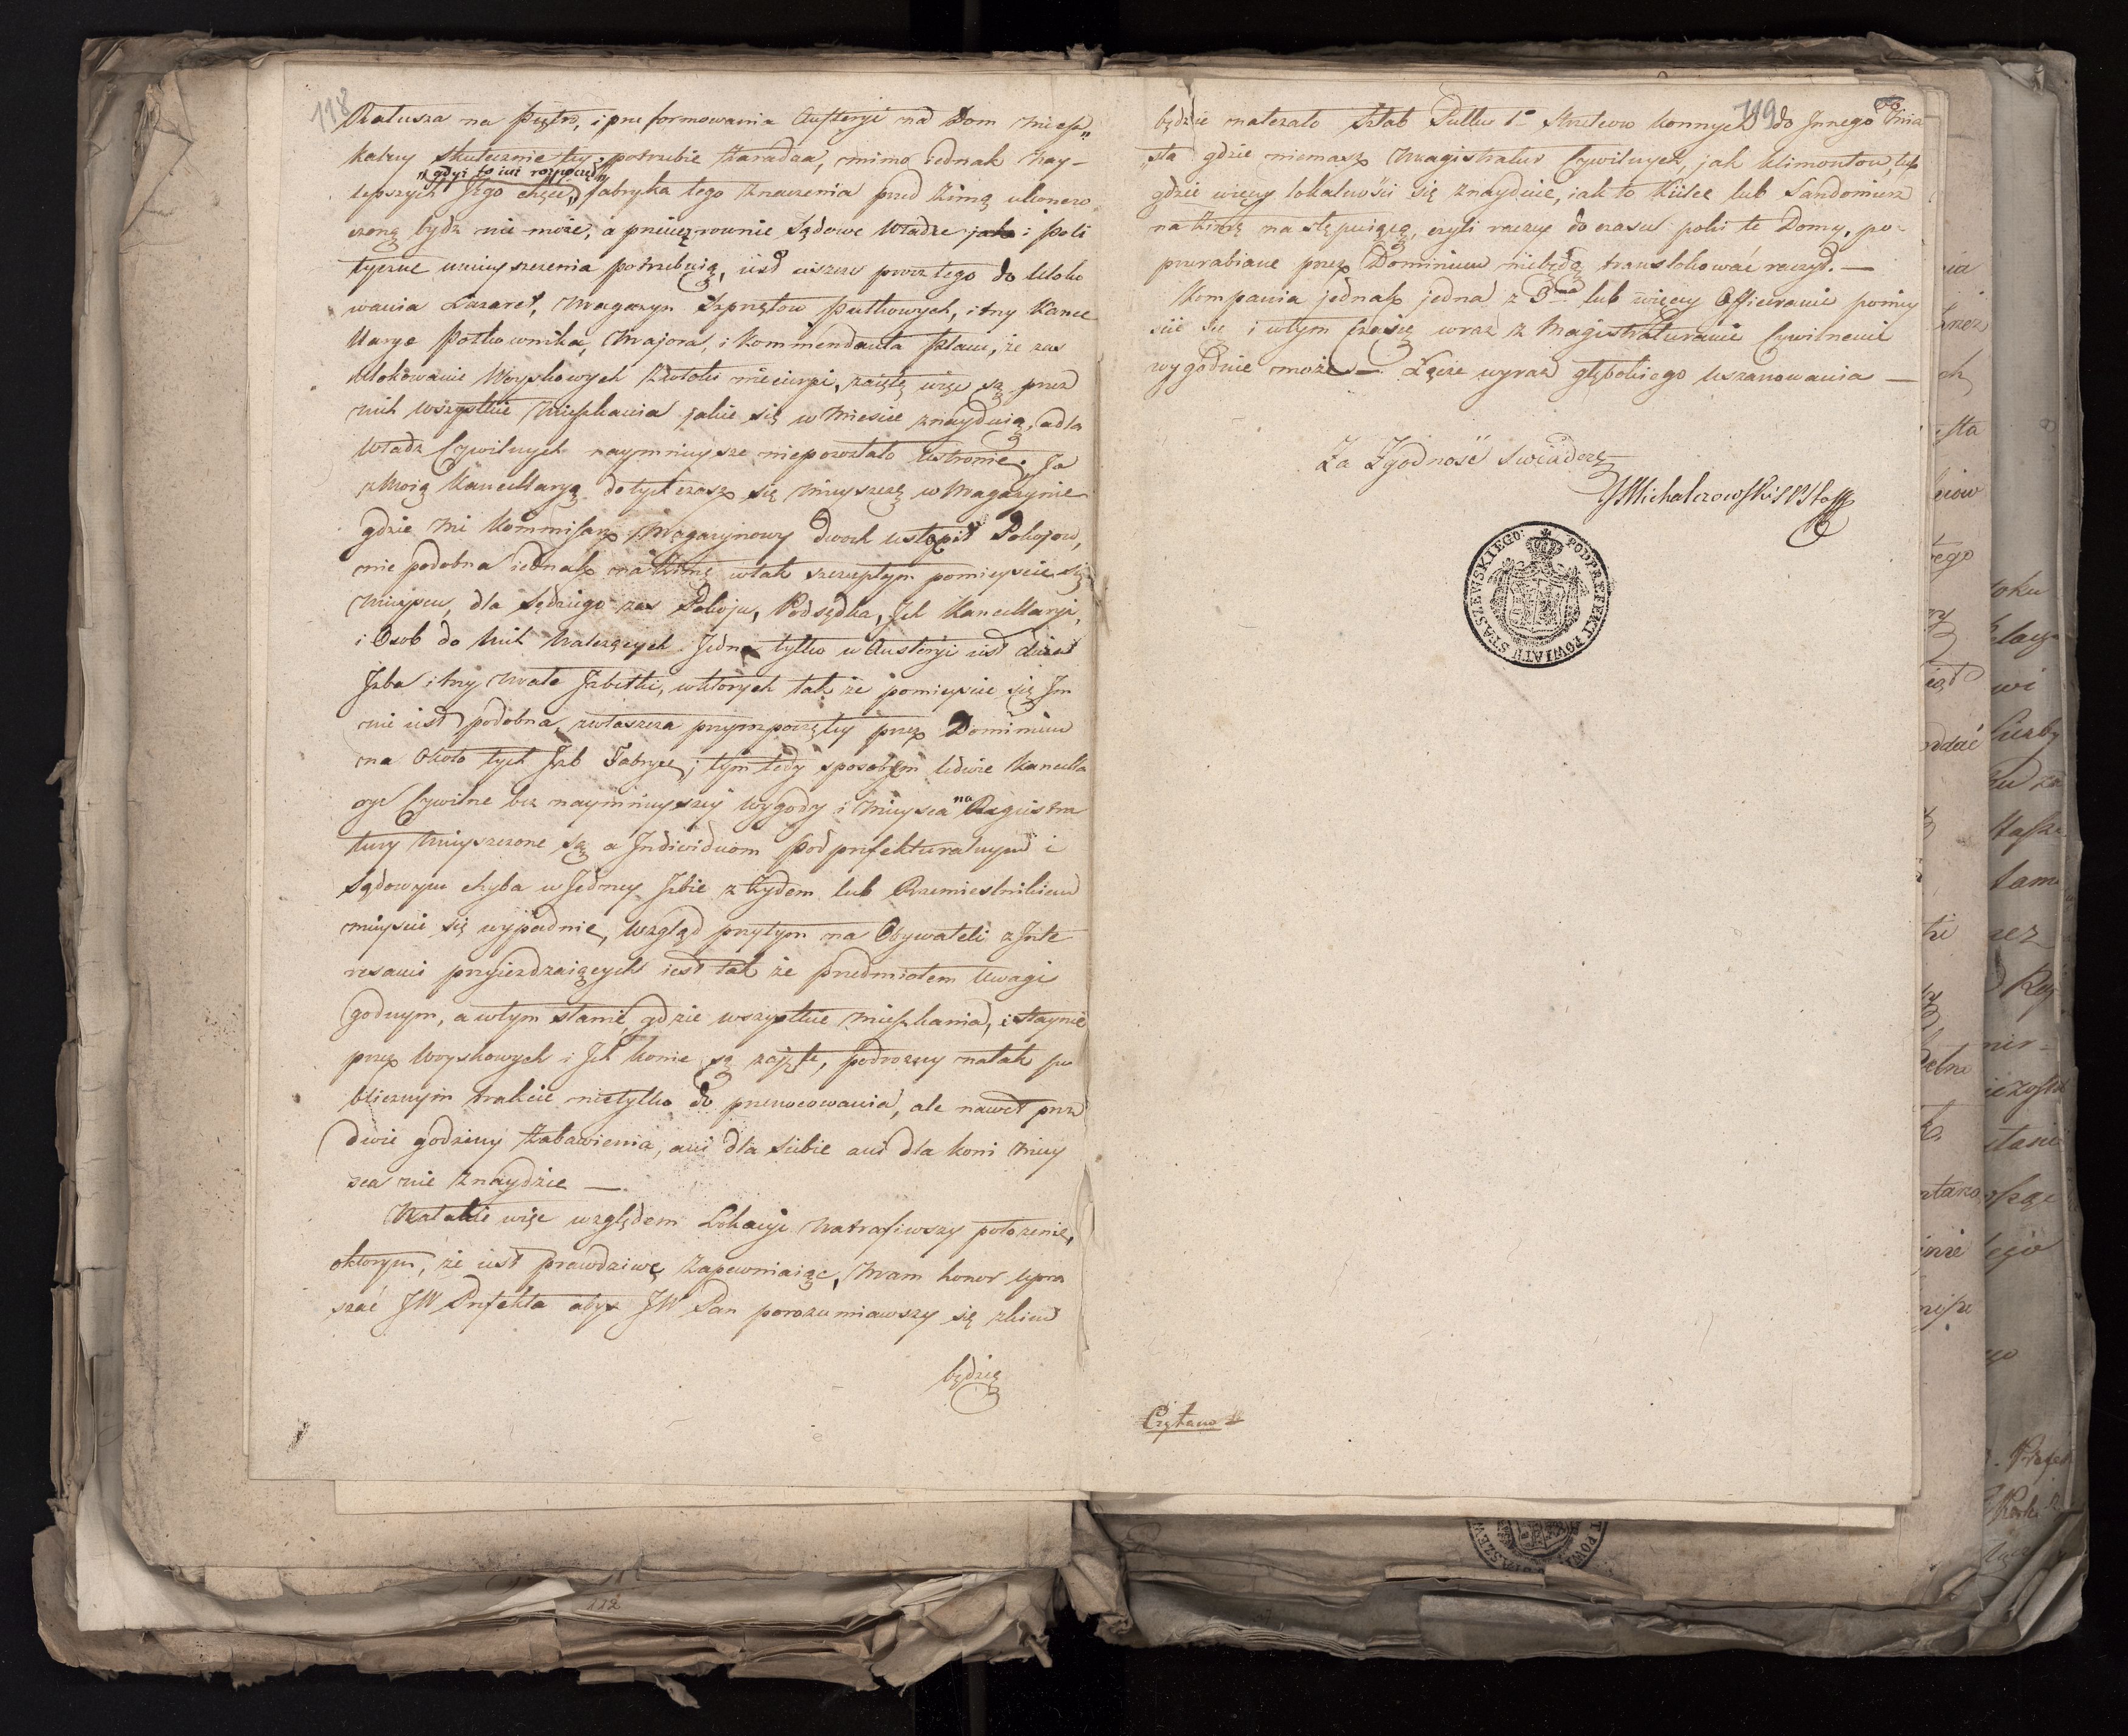 118
Ratusza na Piętro, i przeformowania Austeryi na Dom Miesz„
kalny skutecznie tey potrzebie zaradza, mimo iednak nay-
„gdyż to iuż rozpoczął„
lepszych Jego chęci, fabryka tego znaczenia przed Zimą ukonczo
czoną bydz nie może, a przeciez rownie Sądowe Władze jak i Poli
tyczne umieyszczenia potrzebuią, iest ieszcze procz tego do uloko
wania Lazaret, Magazyn Sprzętow Pułkowych, i trzy Kance
llarye Połkownika, Majora, i Kommendanta Placu, że zas
ulokowanie Woyskowych zwłoki niecierpi, zaięte więc są przez
nich wszystkie Mieszkania jakie się w Miescie znayduią, a dla
Władz Cywilnych naymnieysze niepozostało ustronie; Ja
z Moią Kancellaryą dotychczas się mieszczę w Magazynie
gdzie mi Kommissarz Magazynowy dwoch ustąpił Pokojow,
niepodobna iednak na Zimę w tak szczupłym pomieycić się
Mieyscu, dla Sędziego zas Pokoju, Podsędka, Ich Kancellaryi,
i Osob do Nich Nalezących Jedna tylko w Austeryi iest duża
Izba i trzy Małe Izbetki, w ktorych tak że pomieycić się Im
nie iest podobna, zwłaszcza przy rozpoczętey przez Dominium
na Około tych Izb Fabryce; tym tedy sposobem ledwie Kancella
rye Cywilne bez naymnieyszey wygody i Mieysca na Registra
tury Mieyszczone są a Individuom Podprefekturalnym i
Sądowym chyba w Jedney Izbie z Żydem lub Rzemieslnikiem
mieycić się wypadnie, Wzgląd przytym na Obywateli z Inte
resami przyiezdzaiących iest tak że przedmiotem Uwagi
godnym, a w tym stanie, gdzie wszystkie Mieszkania, i Staynie
przez Woyskowych i Ich Konie są zajęte, podrozny na tak pu
blicznym trakcie nietylko do przenocowania, ale nawet przez
dwie godziny Zabawienia, ani dla Siebie ani dla koni Miey
sca nie Znaydzie —
Na takie więc względem Lokacyi Natrafiwszy położenie,
o ktorym, że iest prawdziwe Zapewniaiąc, Mam honor upra
szać JW Prefekta abyś JW Pan porozumiawszy się z kim
będzie
119
będzie należało Sztab Pułku 1o Strzelcow Konnych do Innego Mia
„sta gdzie niemasz Magistratur Cywilnych, jak Klimontow, lub
gdzie więcey lokalności się Znayduie, iak to Kielce lub Sandomierz
na Zimę następuiącą, czyli raczey do czasu poki te Domy, po-
przerabiane przez Dominium niebędą translokować raczył. —
Kompania jednak jedna z 3ma lub więcey Officerami pomiey
scić się i w tym Czasie wraz z Magistraturami Cywilnemi
wygodnie może — Łącze wyraz głębokiego uszanowania —
Za Zgodność Swiadczę
Michalczowski
PODPREFEKT POWIATU STASZEWSKIEGO
Czytano
112